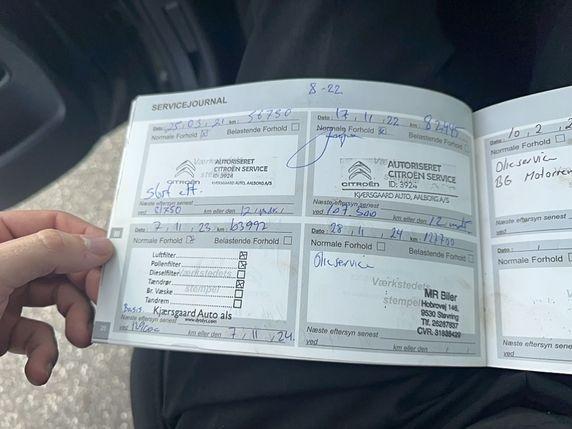 8-22
SERVICEJOURNAL
Dato: 25, 03, 21 km: 56750
Normale Forhold Belastende Forhold
AUTORISERET
CITROËN SERVICE
ID: 3924
CITROËN KJÆRSGAARD AUTO, AALBORG A/S
Næste eftersyn senest
ved km eller den 12
Dato: 17, 11, 22 km:
Normale Forhold Belastende Forhold
AUTORISERET
CITROËN SERVICE
ID: 3924
CITROËN KJÆRSGAARD AUTO, AALBORG A/S
Næste eftersyn senest
ved 107.500 km eller den 12
7, 11, 23 km: 63992
Normale Forhold Belastende Forhold
Værkstedets
stempel
Luftfilter
Pollenfilter
Dieselfilter
Tændrør
Br. Væske
Tandrem
Basis
Kjærsgaard Auto als
Næste eftersyn senest
ved km eller den 7, 11, 24
28, 11, 24
Normale Forhold Belastende Forhold
Olieservice
Værkstedets
stempel
MR Biler
Hobrovej 149,
9530 Støvring
Næste eftersyn senest
ved km eller den
Dato: 10, 2, 2
Normale Forhold
Olieservice
BG
Næste eftersyn senest
ved
Dato:
Normale Forhold
Næste eftersyn senest
ved